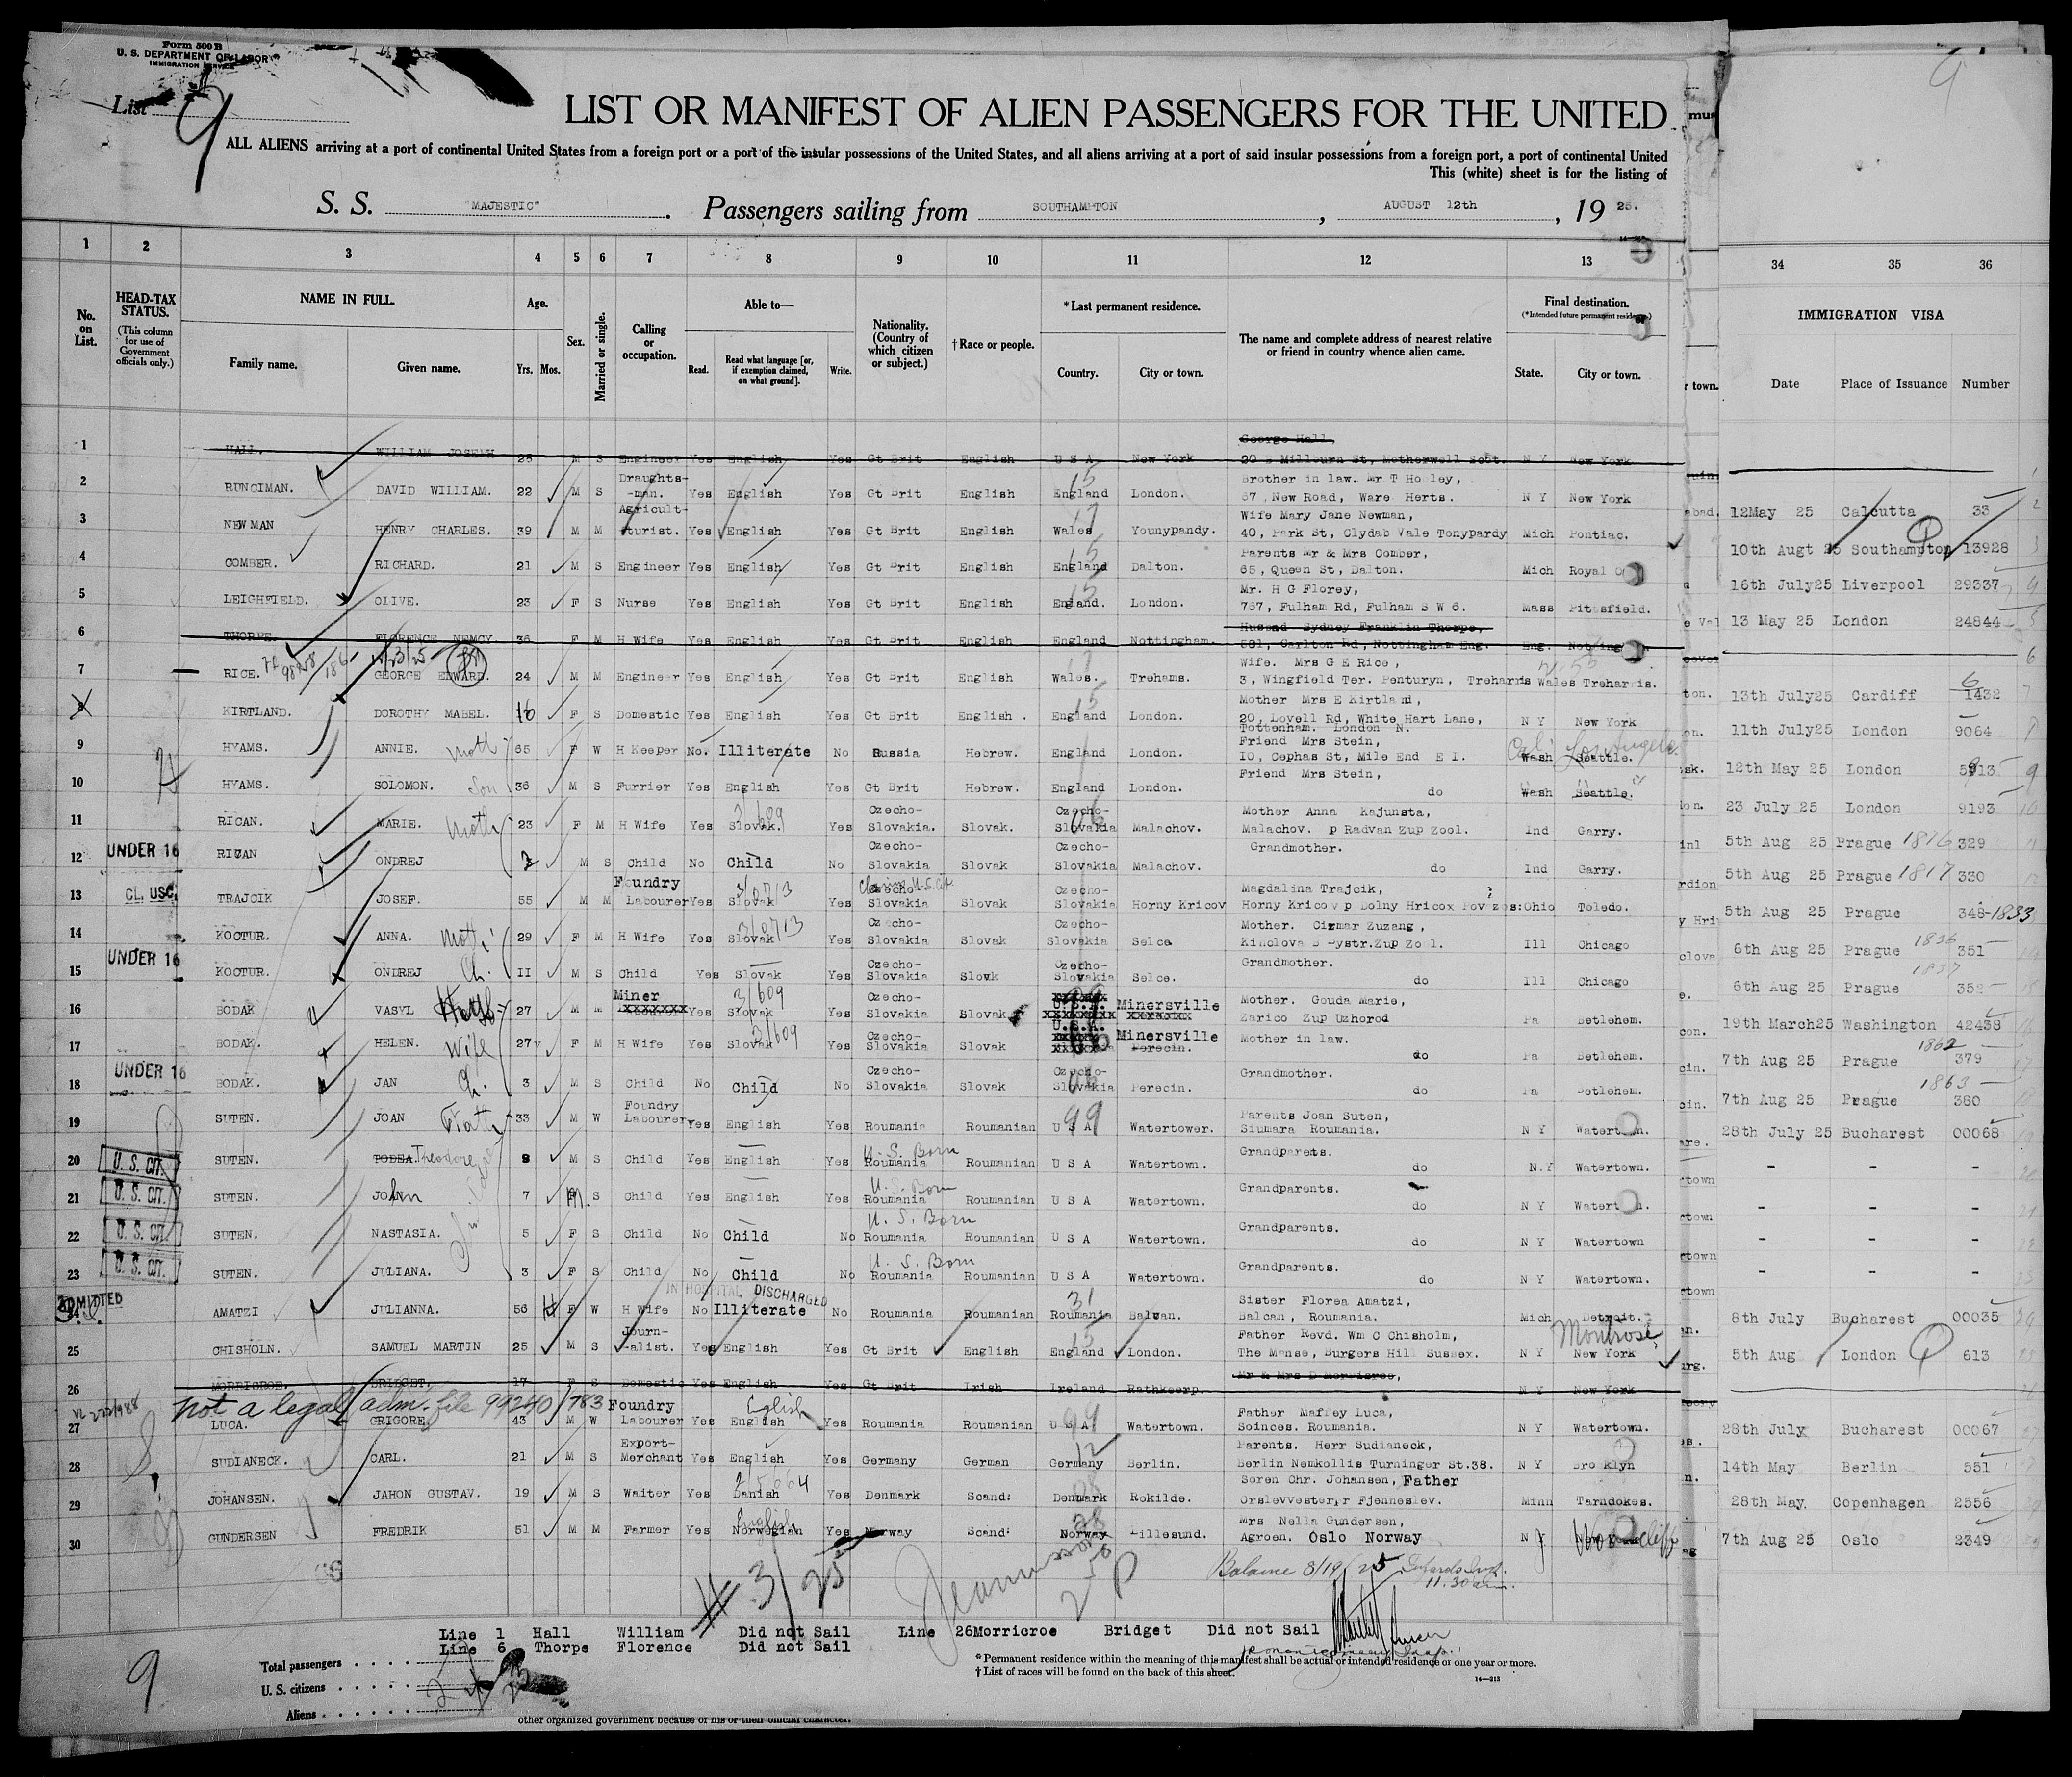 Form 500 B
U. S. DEPARTMENT OF LABOR
IMMIGRATION SERVICE
List 9
LIST OR MANIFEST OF ALIEN PASSENGERS FOR THE UNITED
ALL ALIENS arriving at a port of continental United States from a foreign port or a port of the insular possessions of the United States, and all aliens arriving at a port of said insular possessions from a foreign port, a port of continental United
This (white) sheet is for the listing of
S. S. "MAJESTIC". Passengers sailing from SOUTHAMPTON, AUGUST 12th, 19 25.
1 2 3 4 5 6 7 8 9 10 11 12 13 34 35 36
No. on List.
HEAD-TAX STATUS. (This column for use of Government officials only.)
NAME IN FULL. Family name. Given name.
Age. Yrs. Mos.
Sex.
Married or single.
Calling or occupation.
Able to— Read. Read what language [or, if exemption claimed, on what ground]. Write.
Nationality. (Country of which citizen or subject.)
†Race or people.
*Last permanent residence. Country. City or town.
The name and complete address of nearest relative or friend in country whence alien came.
Final destination. (*Intended future permanent residence.) State. City or town.
IMMIGRATION VISA Date Place of Issuance Number
1 HALL, WILLIAM JOSEPH 25 M S Engineer Yes English Yes Gt Brit English U S A New York George Hall, 20 B Millburn St, Motherwell Scot. N Y New York
2 RUNCIMAN. DAVID WILLIAM. 22 M S Draughts-man. Yes English Yes Gt Brit English England London. Brother in law. Mr. T Holley, 67 New Road, Ware Herts. N Y New York 12May 25 Calcutta 33
3 NEWMAN HENRY CHARLES. 39 M M Agricult-turist. Yes English Yes Gt Brit English Wales Younypandy. Wife Mary Jane Newman, 40, Park St, Clydab Vale Tonypardy Mich Pontiac. 10th Augt 25 Southampton 13928
4 COMBER. RICHARD. 21 M S Engineer Yes English Yes Gt Brit English England Dalton. Parents Mr & Mrs Comber, 65, Queen St, Dalton. Mich Royal O 16th July25 Liverpool 29337
5 LEIGHFIELD. OLIVE. 23 F S Nurse Yes English Yes Gt Brit English England. London. Mr. H G Florey, 757, Fulham Rd, Fulham S W 6. Mass Pittsfield. 13 May 25 London 24844
6 THORPE. FLORENCE NEMCY. 36 F M H Wife Yes English Yes Gt Brit English England Nottingham. Husand Sydney Franklin Thorpe, 581, Carlton Rd, Nottingham Eng. Eng. Notting
7 RICE. GEORGE EDWARD. 24 M M Engineer Yes English Yes Gt Brit English Wales. Trehams. Wife. Mrs G E Rice, 3, Wingfield Ter. Penturyn, Treharris Wales Treharris. 13th July25 Cardiff 1432
8 KIRTLAND. DOROTHY MABEL. 16 F S Domestic Yes English Yes Gt Brit English. England London. Mother Mrs E Kirtland, 20, Lovell Rd, White Hart Lane, Tottenham. London N. N Y New York 11th July25 London 9064
9 HYAMS. ANNIE. Moth 65 F W H Keeper No. Illiterate No Russia Hebrew. England London. Friend Mrs Stein, 10, Cephas St, Mile End E I. Wash Seattle. Cal. Los Angeles. 12th May 25 London 5913
10 HYAMS. SOLOMON. Son 36 M S Furrier Yes English Yes Gt Brit Hebrew. England London. Friend Mrs Stein, do Wash Seattle. 23 July 25 London 9193
11 RICAN. MARIE. Moth 23 F M H Wife Yes Slovak. Yes Czecho-Slovakia. Slovak. Czecho-Slovakia Malachov. Mother Anna Kajunsta, Malachov. p Radvan Zup Zool. Ind Garry. 5th Aug 25 Prague 1816 329
12 UNDER 16 RICAN ONDREJ 2 M S Child No Child No Czecho-Slovakia Slovak Czecho-Slovakia Malachov. Grandmother. do Ind Garry. 5th Aug 25 Prague 1817 330
13 CL. USC. TRAJCIK JOSEF. 55 M M Foundry Labourer Yes Slovak Yes Czecho-Slovakia Slovak Czecho-Slovakia Horny Kricov Magdalina Trajcik, Horny Kricov p Dolny Hricox Povazos: Ohio Toledo. 5th Aug 25 Prague 348-1833
14 KOCTUR. ANNA. Moth 29 F M H Wife Yes Slovak Yes Czecho-Slovakia Slovak Czecho-Slovakia Selce Mother. Cizmar Zuzang, Kinclova B Bystr.Zup Zool. Ill Chicago 6th Aug 25 Prague 1836 351
15 UNDER 16 KOCTUR. ONDREJ Ch. II M S Child Yes Slovak Yes Czecho-Slovakia Slovk Czecho-Slovakia Selce. Grandmother. do Ill Chicago 6th Aug 25 Prague 1837 352
16 BODAK VASYL 27 M M Miner Yes Slovak Yes Czecho-Slovakia Slovak U.S.A. Minersville Mother. Gouda Marie, Zarico Zup Uzhorod Pa Betlehem. 19th March25 Washington 42438
17 BODAK. HELEN. Wife 27 F M H Wife Yes Slovak Yes Czecho-Slovakia Slovak U.S.A. Minersville Perecin. Mother in law. do Pa Betlehem. 7th Aug 25 Prague 1862 379
18 UNDER 16 BODAK. JAN Ch. 3 M S Child No Child No Czecho-Slovakia Slovak Czecho-Slovakia Perecin. Grandmother. do Pa Betlehem. 7th Aug 25 Prague 1863 380
19 SUTEN. JOAN Fath 33 M W Foundry Labourer Yes English Yes Roumania Roumanian U S A Watertower. Parents Joan Suten, Siumara Roumania. N Y Watertown. 28th July 25 Bucharest 00068
20 U. S. CIT. SUTEN. TODEA. Theodore 9 M S Child Yes English Yes U. S. Born Roumania Roumanian U S A Watertown. Grandparents. do N.Y Watertown. - - -
21 U. S. CIT. SUTEN. John 7 M. S Child Yes English Yes U. S. Born Roumania Roumanian U S A Watertown. Grandparents. do N Y Watertown. - - -
22 U. S. CIT. SUTEN. NASTASIA. 5 F S Child No Child No U. S. Born Roumania Roumanian U S A Watertown. Grandparents. do N Y Watertown - - -
23 U. S. CIT. SUTEN. JULIANA. 3 F S Child No Child No U. S. Born Roumania Roumanian U S A Watertown. Grandparents. do N Y Watertown. - - -
IN HOSPITAL DISCHARGED
ADMITTED AMATZI JULIANNA. 56 F W H Wife No Illiterate No Roumania Roumanian Roumania Balcan. Sister Florea Amatzi, Balcan, Roumania. Mich Detroit. 8th July Bucharest 00035
25 CHISHOLN. SAMUEL MARTIN 25 M S Journ-alist. Yes English Yes Gt Brit English England London. Father Revd. Wm C Chisholm, The Manse, Burgers Hill Sussex. N Y New York Montrose 5th Aug London 613
26 MORRICROE. BRIDGET. 17 F S Domestic Yes English Yes Gt Brit Irish Ireland Rathkeerp. Mr & Mrs D Morricroe, N Y New York
not a legal adm. file 99240/783
27 LUCA. GRIGORE. 43 M W Foundry Labourer Yes English Yes Roumania Roumanian U S A Watertown. Father Maffey Luca, Soinces. Roumania. N Y Watertown. 28th July Bucharest 00067
28 SUDIANECK. CARL. 21 M S Export-Merchant Yes English Yes Germany German Germany Berlin. Parents. Herr Sudianeck, Berlin Nemkollis Turninger St.38. N Y Brooklyn 14th May Berlin 551
29 JOHANSEN. JAHON GUSTAV. 19 M S Waiter Yes Danish Yes Denmark Scand: Denmark Rokilde. Soren Chr. Johansen, Father Orslevvesterpr Fjenneslev. Minn Tarndokes. 28th May. Copenhagen 2556
30 GUNDERSEN FREDRIK 51 M M Farmer Yes Norwegian English Yes Norway Scand: Norway Lillesund. Mrs Nella Gundersen, Agroen. Oslo Norway N Y 7th Aug 25 Oslo 2349
# 3/25
Balance 8/19/25
11.30 am.
Line 1 Hall William Did not Sail Line 26 Morricroe Bridget Did not Sail
Line 6 Thorpe Florence Did not Sail
9
Total passengers
U. S. citizens
Aliens
* Permanent residence within the meaning of this manifest shall be actual or intended residence of one year or more.
† List of races will be found on the back of this sheet.
14—213
other organized government because of his or their official character.